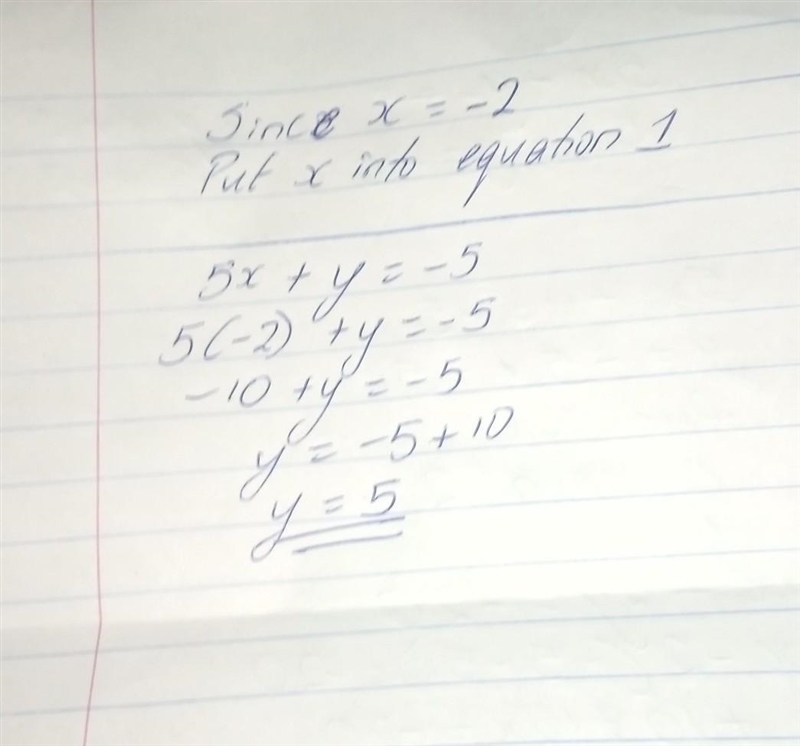 Since x = -2
Put x into equation 1
5x + y = -5
5(-2) + y = -5
-10 + y = -5
y = -5 + 10
y = 5